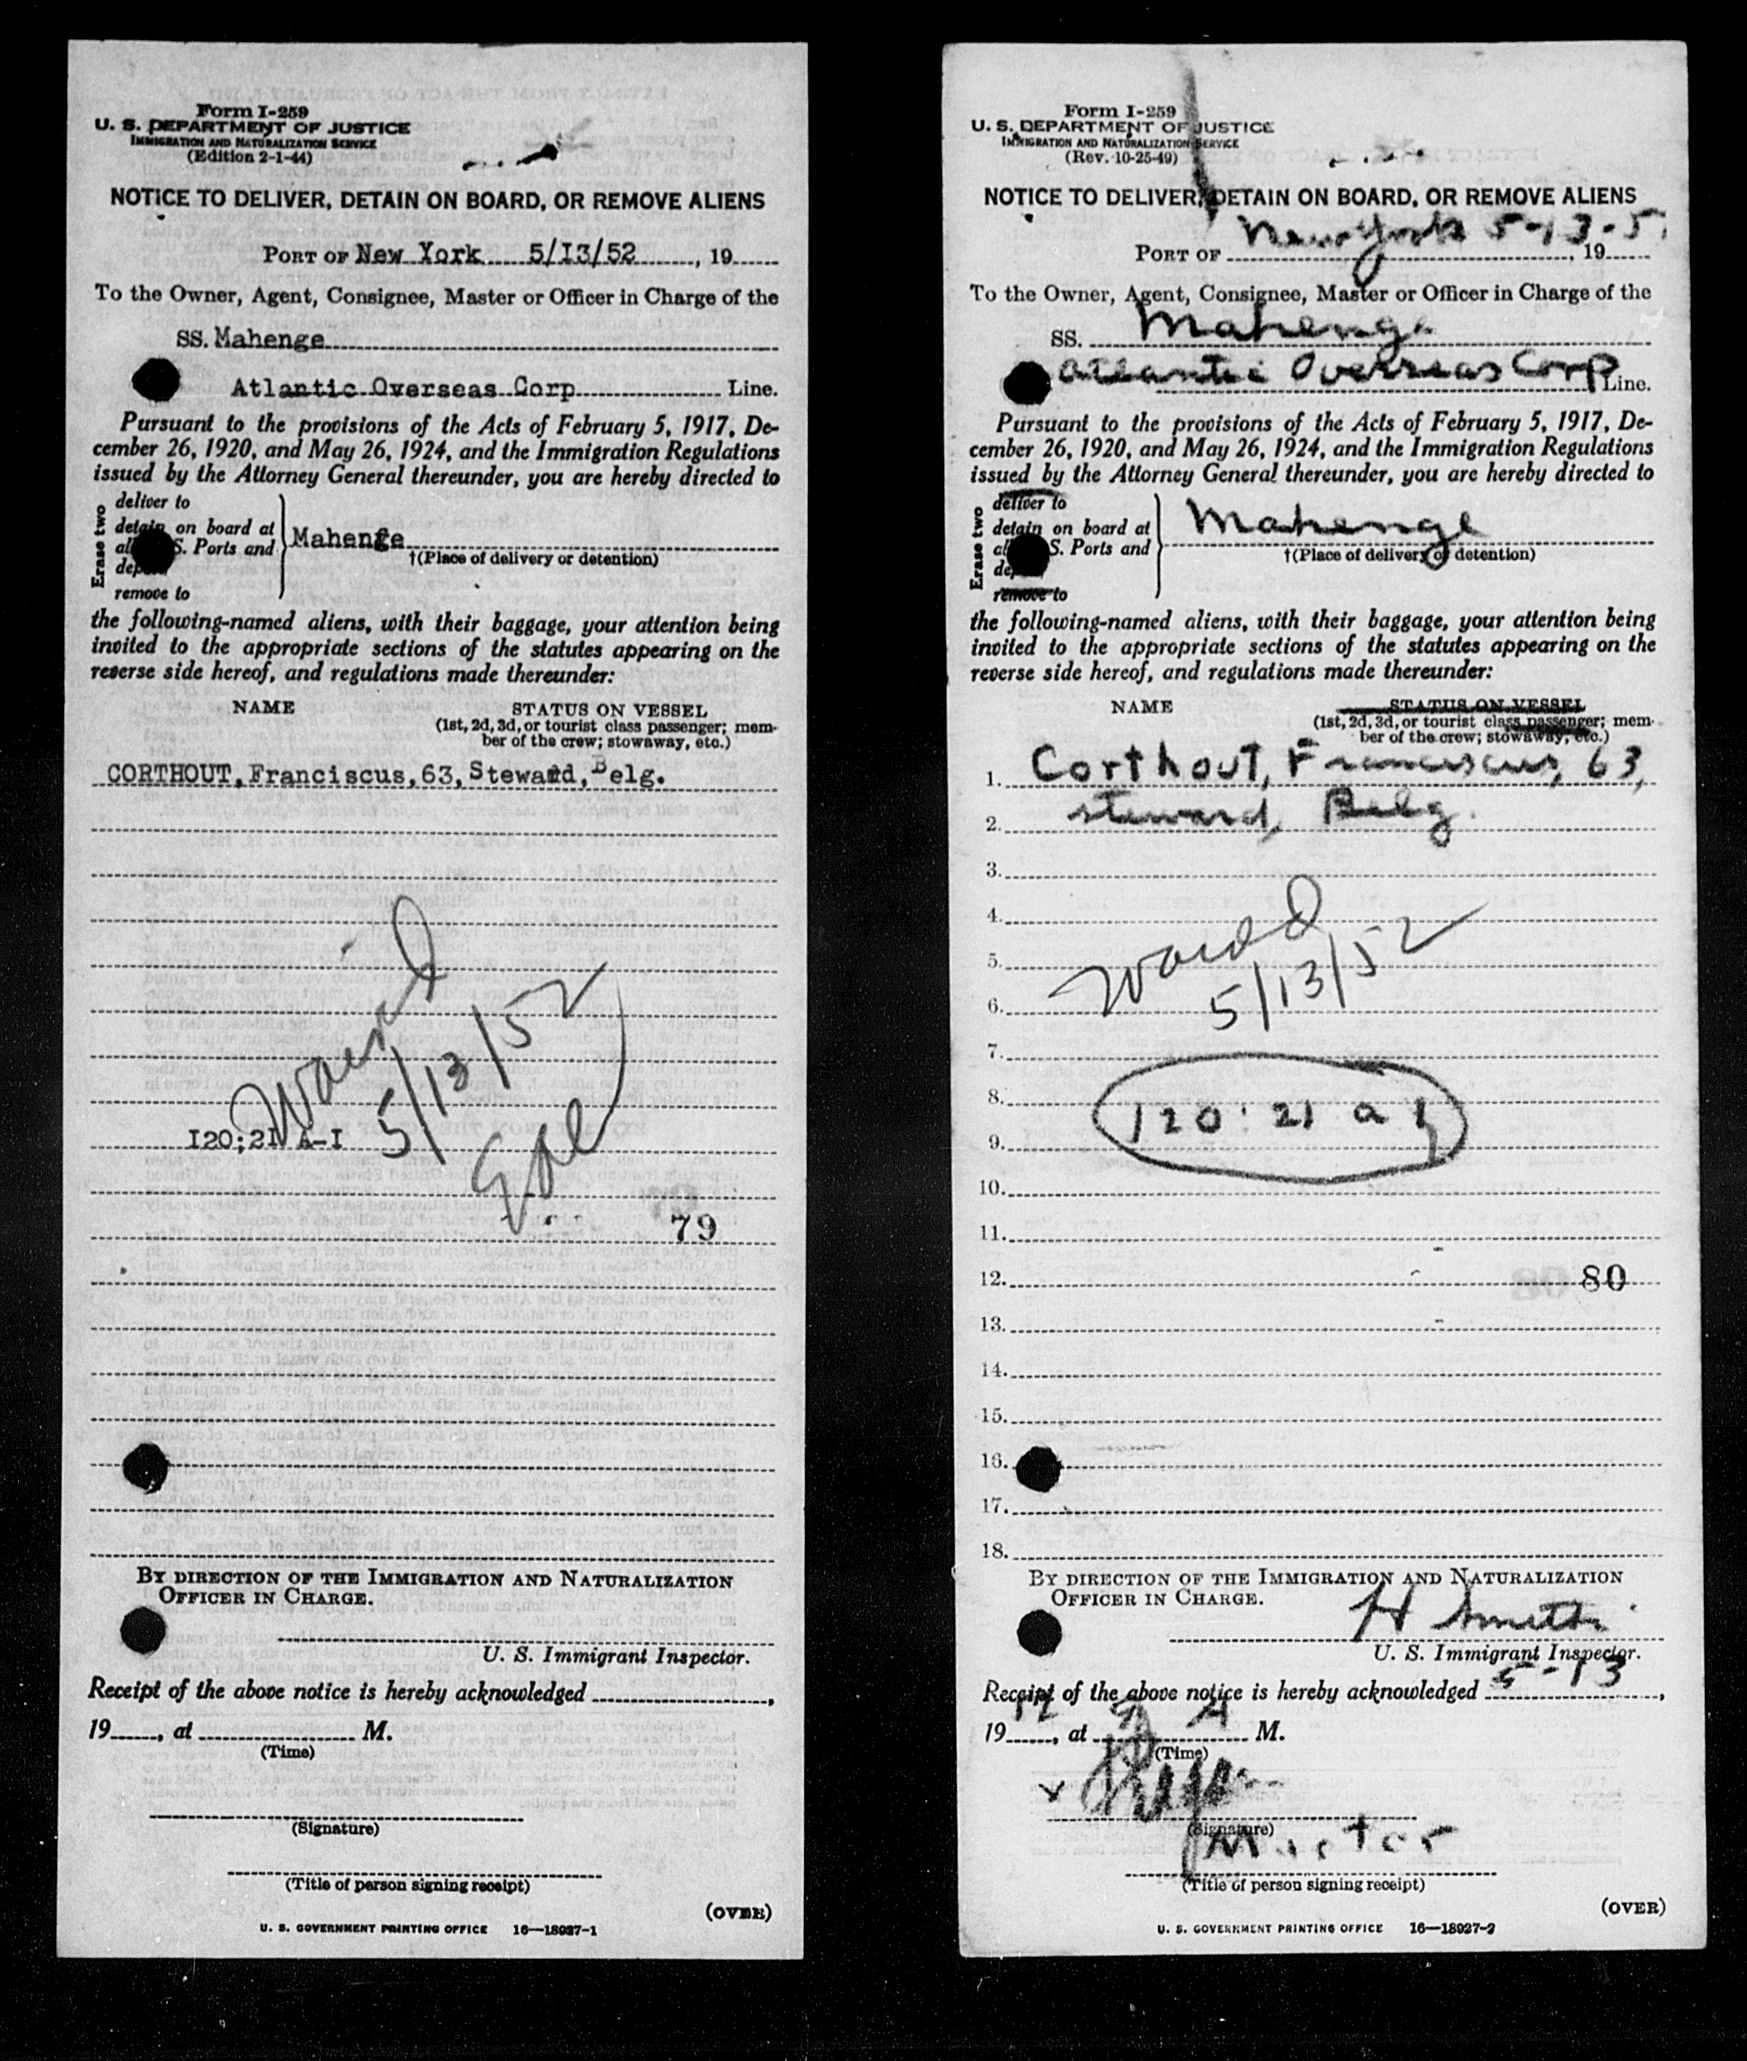 Form I-259
U. S. DEPARTMENT OF JUSTICE
IMMIGRATION AND NATURALIZATION SERVICE
(Edition 2-1-44)
NOTICE TO DELIVER, DETAIN ON BOARD, OR REMOVE ALIENS
PORT OF New York 5/I3/52, 19
To the Owner, Agent, Consignee, Master or Officer in Charge of the
SS. Mahenge
Atlantic Overseas Corp Line.
Pursuant to the provisions of the Acts of February 5, 1917, De-
cember 26, 1920, and May 26, 1924, and the Immigration Regulations
issued by the Attorney General thereunder, you are hereby directed to
Erase two
deliver to
detain on board at
S. Ports and
Mahenge
†(Place of delivery or detention)
remove to
the following-named aliens, with their baggage, your attention being
invited to the appropriate sections of the statutes appearing on the
reverse side hereof, and regulations made thereunder:
NAME STATUS ON VESSEL
(1st, 2d, 3d, or tourist class passenger; mem-
ber of the crew; stowaway, etc.)
CORTHOUT, Franciscus, 63, Steward, Belg.
5/13/52
I20;2I A-I
79
BY DIRECTION OF THE IMMIGRATION AND NATURALIZATION
OFFICER IN CHARGE.
U. S. Immigrant Inspector.
Receipt of the above notice is hereby acknowledged ,
19 , at M.
(Time)
(Signature)
(Title of person signing receipt)
(OVER)
U. S. GOVERNMENT PRINTING OFFICE 16—18927-1
Form I-259
U. S. DEPARTMENT OF JUSTICE
IMMIGRATION AND NATURALIZATION SERVICE
(Rev. 10-25-49)
NOTICE TO DELIVER, DETAIN ON BOARD, OR REMOVE ALIENS
PORT OF New York 5-13-5 , 19
To the Owner, Agent, Consignee, Master or Officer in Charge of the
SS. Mahenge
Atlantic Overseas Corp Line.
Pursuant to the provisions of the Acts of February 5, 1917, De-
cember 26, 1920, and May 26, 1924, and the Immigration Regulations
issued by the Attorney General thereunder, you are hereby directed to
Erase two
deliver to
detain on board at
S. Ports and
Mahenge
†(Place of delivery or detention)
remove to
the following-named aliens, with their baggage, your attention being
invited to the appropriate sections of the statutes appearing on the
reverse side hereof, and regulations made thereunder:
NAME STATUS ON VESSEL
(1st, 2d, 3d, or tourist class passenger; mem-
ber of the crew; stowaway, etc.)
1. Corthout, Franciscus, 63,
2. steward, Belg.
3.
4.
5.
6.
5/13/52
7.
8.
120:21 a 1
9.
10.
11.
12. 80
13.
14.
15.
16.
17.
18.
BY DIRECTION OF THE IMMIGRATION AND NATURALIZATION
OFFICER IN CHARGE.
H Smith
U. S. Immigrant Inspector.
Receipt of the above notice is hereby acknowledged 5-13,
19 , at A M.
(Time)
(Signature)
Master
(Title of person signing receipt)
(OVER)
U. S. GOVERNMENT PRINTING OFFICE 16—18927-2